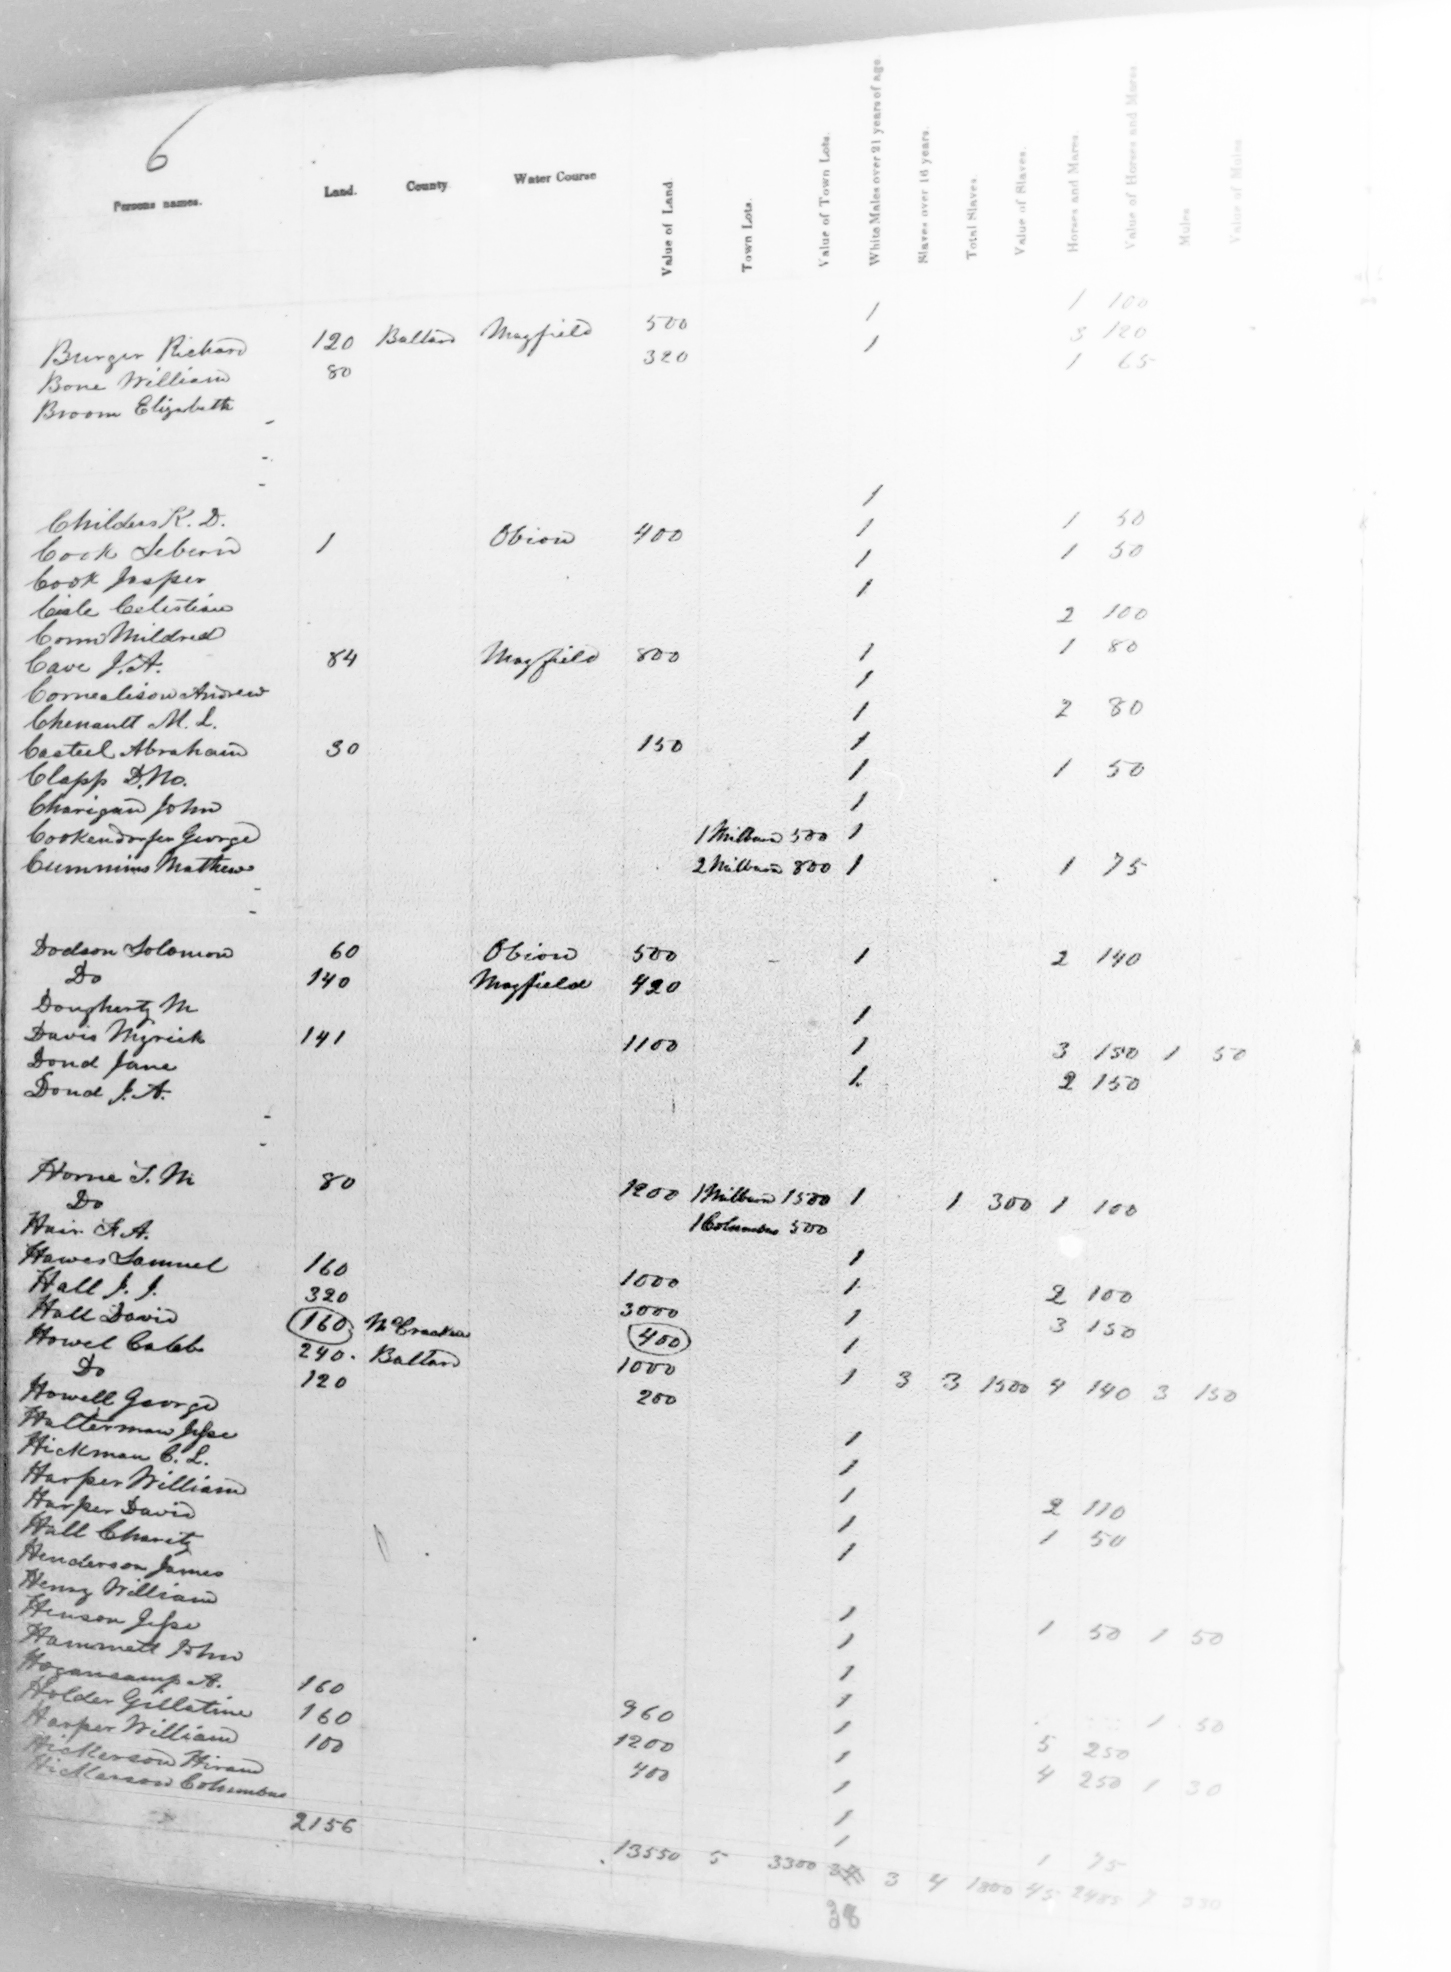 6
Persons names. Land. County Water Course Value of Land Town Lots. Value of Town Lots. White Males over 21 years of age Slaves over 16 years. Total Slaves. Value of Slaves. Horses and Mares. Value of Horses and Mares Mules Value of Mules
Burger Richard 120 Ballard Mayfield 500 1 1 100
Bone William 80 320 1 3 120
Broom Elizabeth 1 65
Childers K. D. 1
Cook Seborn 1 Obion 400 1 1 50
Cook Jasper 1 1 50
Cisle Celestian 1
Conn Mildred 2 100
Cave J. A. 84 Mayfield 800 1 1 80
Cornealison Andrew 1
Chenault M. L. 1 2 80
Casteel Abraham 30 150 1
Clapp D. Mo. 1 1 50
Charigan John 1
Cookendorfer George 1 Milburn 500 1
Cummins Mathew 2 Milburn 800 1 1 75
Dodson Solomon 60 Obion 500 1 2 140
Do 140 Mayfield 420
Dougherty M 1
Davis Myrick 141 1100 1 3 150 1 50
Doud Jane 2 150
Doud J. A. 1
Horne T. M 80 1200 1 Milburn 1500 1 1 300 1 100
Do 1 Columbus 500
Hair F. A. 1
Hawes Samuel 160 1000 1 2 100
Hall J. J. 320 3000 1 3 150
Hall David 160 McCracken 400 1
Howel Caleb 240. Ballard 1000 1 3 3 1500 4 140 3 150
Do 120 200
Howell George 1
Halterman Jesse 1
Hickman C. L. 1
Harper William 1 2 110
Harper David 1 1 50
Hall Charity
Henderson James 1
Henry William 1 1 50 1 50
Henson Jesse 1
Hammett John 1
Hogancamp A. 160 960 1 1 50
Holder Gillatine 160 1200 1 5 250
Harper William 100 400 1 4 250 1 30
Hickerson Hiram 1
Hickerson Columbus 1 1 75
2156 13550 5 3300 3 4 1800 45 2485 7 330
38